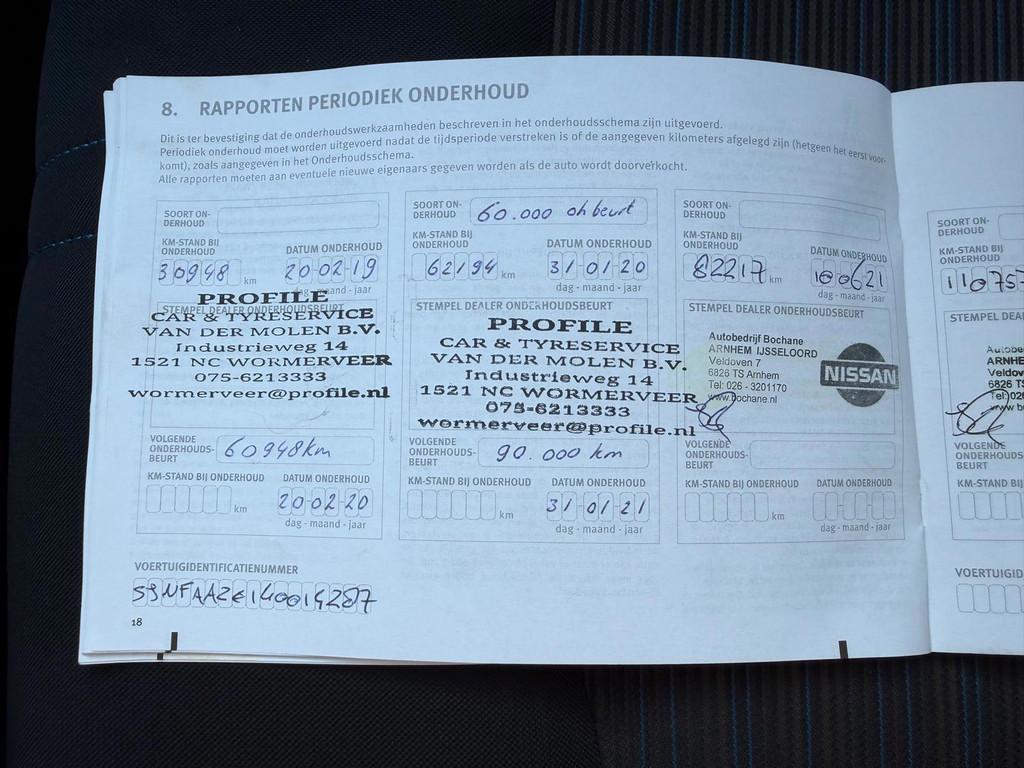 8. RAPPORTEN PERIODIEK ONDERHOUD
Dit is ter bevestiging dat de onderhoudswerkzaamheden beschreven in het onderhoudsschema zijn uitgevoerd.
Periodiek onderhoud moet worden uitgevoerd nadat de tijdsperiode verstreken is of de aangegeven kilometers afgelegd zijn (hetgeen het eerst voor-
komt), zoals aangegeven in het Onderhoudsschema.
Alle rapporten moeten aan eventuele nieuwe eigenaars gegeven worden als de auto wordt doorverkocht.
SOORT ON-
DERHOUD
KM-STAND BIJ
ONDERHOUD
DATUM ONDERHOUD
30948 km
20-02-19
dag - maand - jaar
STEMPEL DEALER ONDERHOUDSBEURT
PROFILE
CAR & TYRESERVICE
VAN DER MOLEN B.V.
Industrieweg 14
1521 NC WORMERVEER
075-6213333
wormerveer@profile.nl
VOLGENDE
ONDERHOUDS-
BEURT
60948km
KM-STAND BIJ ONDERHOUD
DATUM ONDERHOUD
km
20-02-20
dag - maand - jaar
SOORT ON-
DERHOUD
60.000 oh beurt
KM-STAND BIJ
ONDERHOUD
DATUM ONDERHOUD
62194 km
31-01-20
dag - maand - jaar
STEMPEL DEALER ONDERHOUDSBEURT
PROFILE
CAR & TYRESERVICE
VAN DER MOLEN B.V.
Industrieweg 14
1521 NC WORMERVEER
075-6213333
wormerveer@profile.nl
VOLGENDE
ONDERHOUDS-
BEURT
90.000 km
KM-STAND BIJ ONDERHOUD
DATUM ONDERHOUD
km
31-01-21
dag - maand - jaar
SOORT ON-
DERHOUD
KM-STAND BIJ
ONDERHOUD
DATUM ONDERHOUD
82217 km
100621
dag - maand - jaar
STEMPEL DEALER ONDERHOUDSBEURT
Autobedrijf Bochane
ARNHEM IJSSELOORD
Veldoven 7
6826 TS Arnhem
Tel: 026 - 3201170
www.bochane.nl
NISSAN
VOLGENDE
ONDERHOUDS-
BEURT
KM-STAND BIJ ONDERHOUD
DATUM ONDERHOUD
km
dag - maand - jaar
VOERTUIGIDENTIFICATIENUMMER
18
SOORT ON-
DERHOUD
KM-STAND BIJ
ONDERHOUD
11075
STEMPEL DEA
ARNHE
Veldov
6826 TS
Tel: 02
VOLGENDE
ONDERHOUDS
BEURT
KM-STAND BIJ
VOERTUIGID